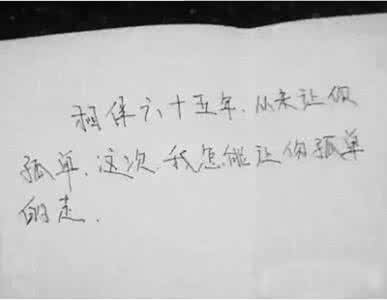 相伴六十五年,从未让你
孤单,这次,我怎能让你孤单
的走.